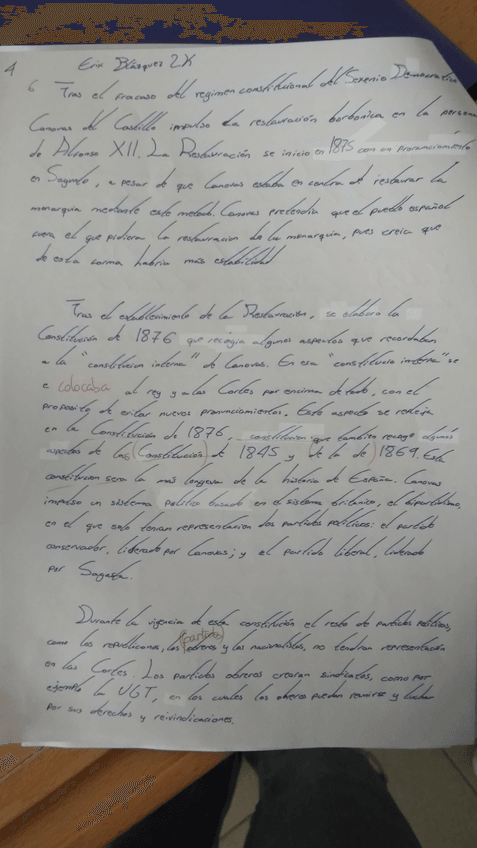 4 Erix Blázquez 2X
6 Tras el fracaso del regimen constitucional del Sexenio Democratico
Canovas del Castillo impulso la restauración borbonica en la persona
de Alfonso XII. La Restauración se inicio en 1875 con un pronunciamiento
en Sagunto, a pesar de que Canovas estaba en contra de restaurar la
monarquia mediante este metodo. Canovas pretendia que el pueblo español
fuera el que pidiera la restauracion de la monarquia, pues creia que
de esta forma habria más estabilidad
Tras el establecimiento de la Restauración, se elaboro la
Constitución de 1876 que recogia algunos aspectos que recordaban
a la "constitucion interna" de Canovas. En esa "constitucio interna" se
e colocaba al rey y a las Cortes por encima de todo, con el
proposito de evitar nuevos pronunciamientos. Este aspecto se refleja
en la Constitución de 1876, constitucion que tambien recoge algunos
aspectos de las (Constitución) de 1845 y (de la de) 1869. Esta
constitucion sera la mas longeva de la historia de España. Canovas
impulso un sistema politico basado en el sistema britanico, el bipartidismo,
en el que solo tenian representacion dos partidos politicos: el partido
conservador, liderado por Canovas; y el partido liberal, liderado
por Sagasta.
Durante la vigencia de esta constitución el resto de partidos politicos,
como los republicanos, los (partidos) obreros y los nacionalistas, no tendran representación
en las Cortes. Los partidos obreros crearan sindicatos, como por
ejemplo la UGT, en los cuales los obreros puedan reunirse y luchar
por sus derechos y reivindicaciones.